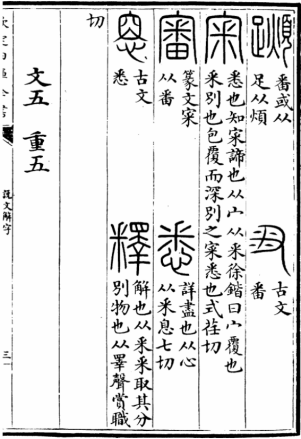 𨆌 番或从
足从煩
𠂭 古文
番
宷 悉也知宷諦也从宀从釆徐鍇曰宀覆也
釆別也包覆而深別之宷悉也式荏切
審 篆文宷
从番
悉 詳盡也从心
从釆息七切
𢚊 古文
悉
釋 解也从釆釆取其分
別物也从睪聲賞職
切
文五 重五
說文解字
三